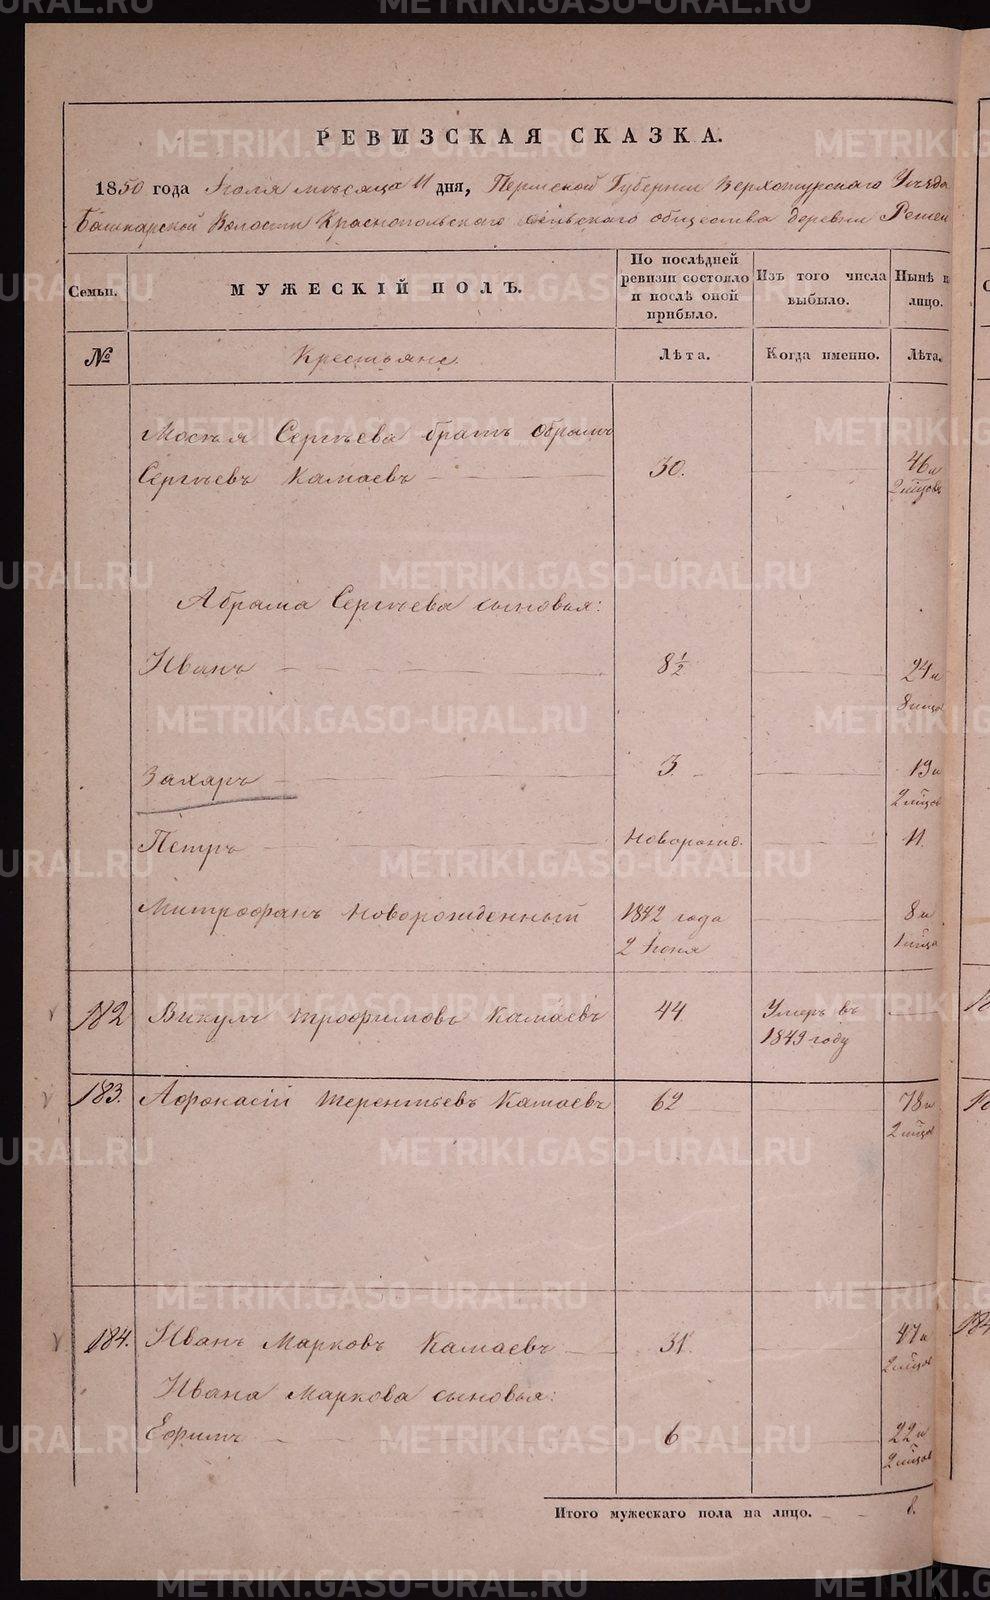 РЕВИЗСКАЯ СКАЗКА.
1850 года Іюля мѣсяца 11 дня, Пермской Губерніи Верхотурскаго Уѣзда
Башкарской Волости Краснопольскаго сельскаго общества деревни
Семьи. МУЖЕСКІЙ ПОЛЪ. По послѣдней ревизіи состояло и послѣ оной прибыло. Изъ того числа выбыло. Нынѣ на лицо.
№ Крестьяне. Лѣта. Когда именно. Лѣта.
Сергѣева братъ Обрамъ
Сергѣевъ Камаевъ 30. 46 и
2 мѣсяцовъ
Абрама Сергѣева сыновья:
Иванъ 8 1/2 24 и
8 мѣсяцо
Захаръ 3 19 и
2 мѣсяцов
Петръ Новорожд. 11.
Митрофанъ новорожденный 1842 года 8 и
2 Іюня 1 мѣсяца
182 Викулъ Трофимовъ Камаевъ 44 Умеръ въ
1849 году
183. Афонасій Терентьевъ Камаевъ 62 78 и
2 мѣсяцов
184. Иванъ Марковъ Камаевъ 31 47 и
2 мѣсяцов
Ивана Маркова сыновья:
Ефимъ 6 22 и
2 мѣсяцов
Итого мужескаго пола на лицо. 8.
METRIKI.GASO-URAL.RU